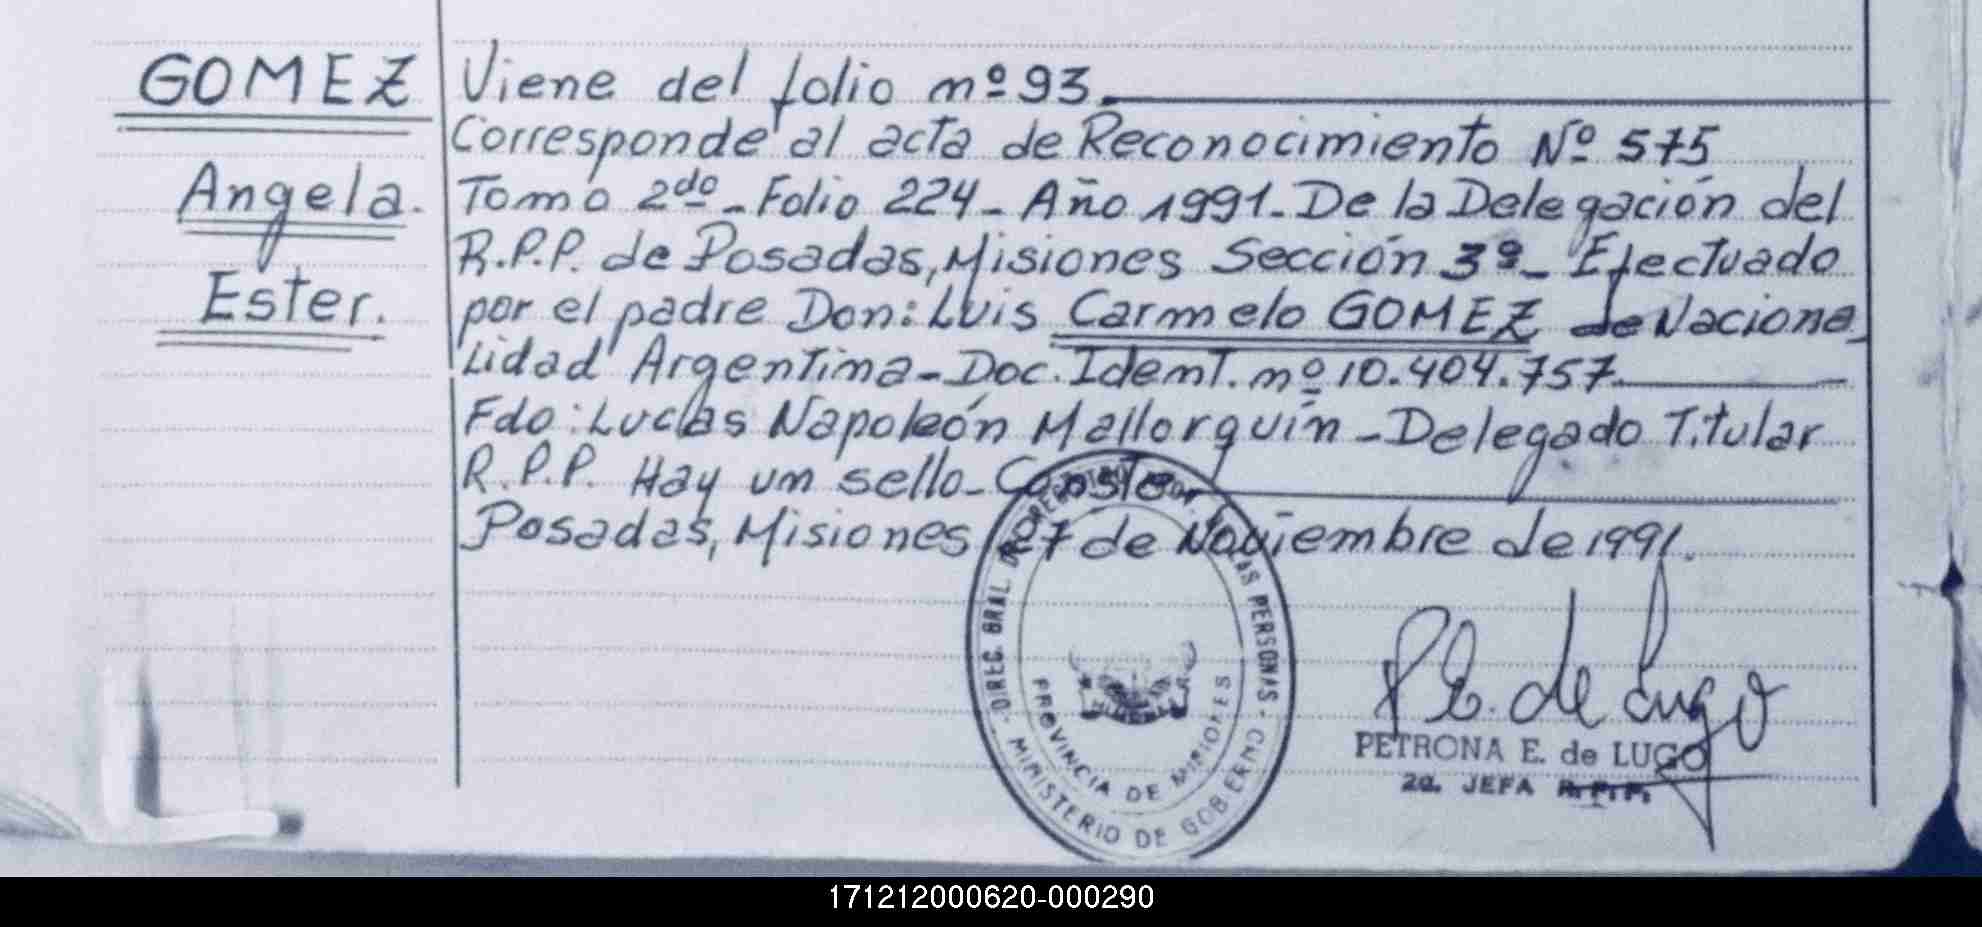 GOMEZ
Angela.
Ester.
Viene del folio nº 93.
Corresponde al acta de Reconocimiento Nº 575
Tomo 2do - Folio 224 - Año 1991 - De la Delegación del
R.P.P. de Posadas, Misiones Sección 3ª - Efectuado
por el padre Don: Luis Carmelo GOMEZ de Naciona
lidad Argentina - Doc. Ident. nº 10.404.757.
Fdo: Lucas Napoleón Mallorquín - Delegado Titular
R.P.P. Hay un sello - Conste.
Posadas, Misiones 27 de Noviembre de 1991.
DIREC. GRAL. DE REGISTRO PROV. DE LAS PERSONAS
PROVINCIA DE MISIONES
MINISTERIO DE GOBIERNO
P.E. de Lugo
PETRONA E. de LUGO
2a. JEFA R.P.P.
171212000620-000290